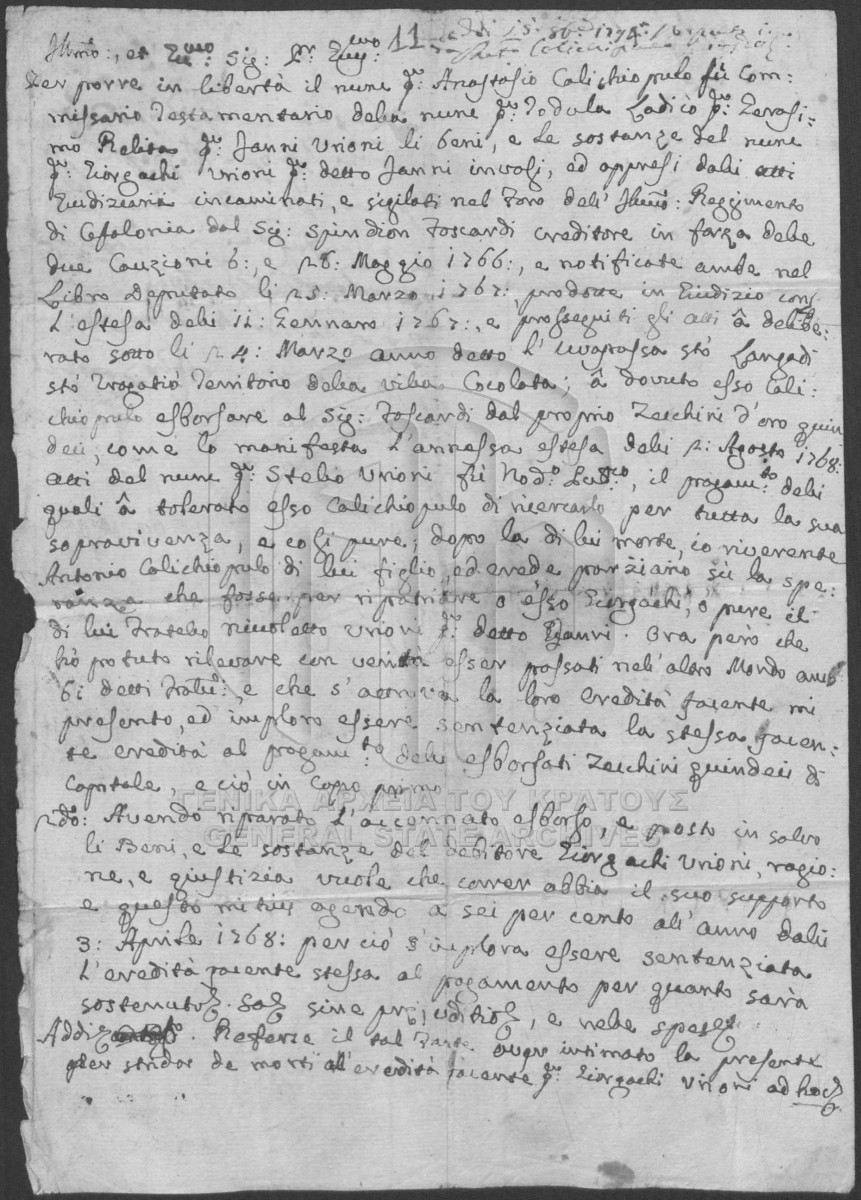 11
Illmo:, et Sig:
Per porre in libertà il nunc qm: Anastasio Calichiopulo fù Com:
missario Testamentario della nunc qm: Todula Ladico qm: Gerasi:
mo Relita qm: Janni Urioni li beni, e le sostanze del nunc
qm: Giorgachi Urioni qm: detto Janni involti, ed appresi dalli atti
Giudiziarii incaminati, e sigilati nel Foro dell' Illmo: Reggimento
di Cefalonia dal Sig: Spiridion Foscardi creditore in forza delle
due Cauzioni 6:, e 28: Maggio 1766:, e notificate ambe nel
Libro Deputato li 25: Marzo 1767:, prodotte in Giudizio con
l'estesa delli 11: Gennaro 1767:, e prosseguiti gli atti â delibe:
rato sotto li 24: Marzo anno detto l' stò Langadi
stò Tragatiò Territorio della villa Cocolata; â dovuto esso Cali:
chiopulo esborsare al Sig: Foscardi dal proprio Zecchini d'oro quin
deci, come lo manifesta l'annessa estesa delli 2: Agosto 1768:
atti del nunc qm: Stelio Urioni fù Nodo: il pagamto: delli
quali â tolerato esso Calichiopulo di ricercarlo per tutta la sua
sopravivenza, e così pure, dopo la di lui morte, io riverente
Antonio Calichiopulo di lui figlio, ed erede porziario sù la spe:
ranza che fosse per ripatriare o esso Giorgachi, o pure il
di lui Fratello Nicoletto Urioni qm: detto Janni. Ora però che
hò potuto rilevare con verità esser passati nell'altro Mondo amb
bi detti Fratelli:, e che s'attrova la loro eredità jacente mi
presento, ed imploro essere sentenziata la stessa jacen:
te eredità al pagamto: delli esborsati Zecchini quindeci di
Capitale, e ciò in Capo primo
2do: Avendo riparato l'accennato esborso, e posto in salvo
li Beni, e le sostanze del debitore Giorgachi Urioni, ragio:
ne, e giustizia vuole che correr abbia il suo supporto
e questo mitius agendo a sei per cento all'anno dalli
3: Aprile 1768: perciò s'implora essere sentenziata
l'eredità jacente stessa al pagamento per quanto sarà
sostenuto. Sal sine prejuditio, e nelle spese
Addi . Referse il tal Fante aver intimato la presente
per stridor de morti all'eredità jacente qm: Giorgachi Urioni ad hoc
ΓΕΝΙΚΑ ΑΡΧΕΙΑ ΤΟΥ ΚΡΑΤΟΥΣ
GENERAL STATE ARCHIVES